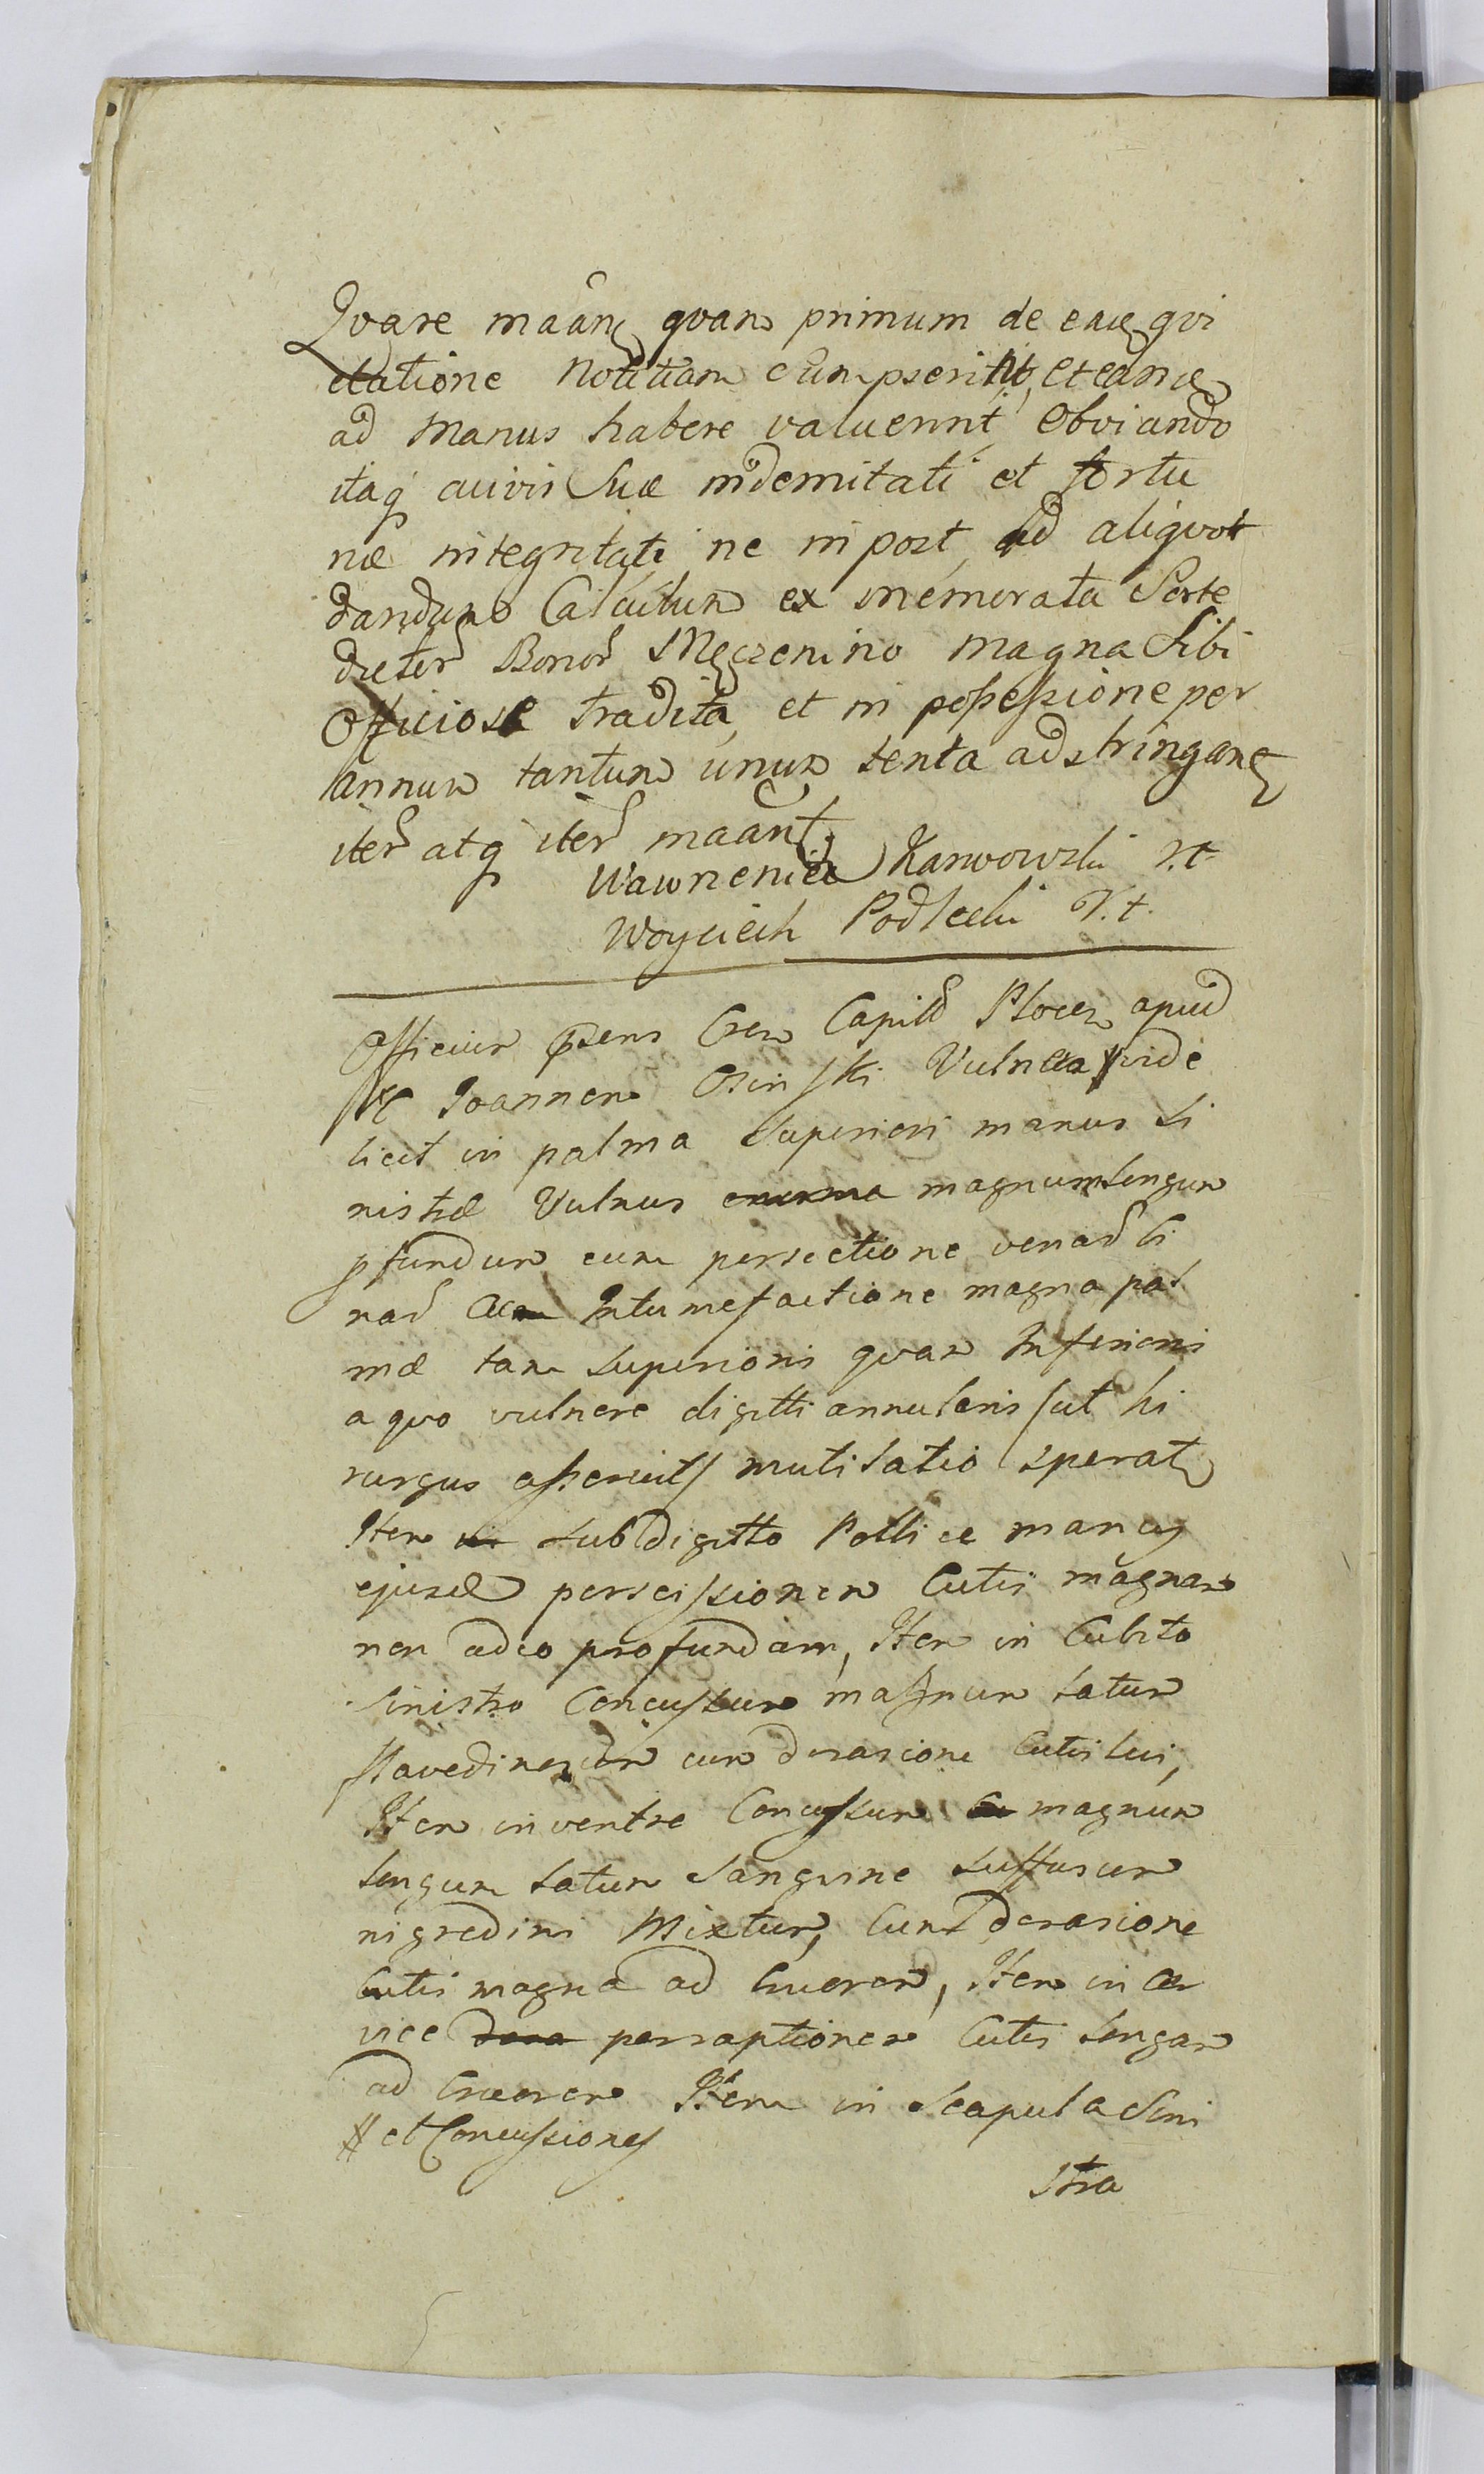 Qvare maãn qvam primum de eaq qvi
etatione notitiam cumpserint, et eamq
ad manus habere valuerint, obviando
itaq cuivis suæ indemitati et fortu
næ integritati ne in post ad aliqvot
dandum Calculum ex memorata Sorte
dictor Bonor Męczenino magna sibi
officiose tradita, et in possessione per
annum tantum unum tenta adstringant
iter atq iter maãnt
Wawrzeniec Karwowski V.t.
Woyciech Podlecki V.t.
Officium præsens Cren Capitl Plocen apud
Joannem Osinski Vulnera vide
licet in palma superiori manus si
nistræ Vulnus magnum longum
pfundum cum persectione venar li
nar Intumefactione magna pal
mæ tam superioris qvam Inferioris
a qvo vulnere digitti annularis sut hi
rurgus asseruits mutilatio sperat
Item sub digitto Pollice manus
ejusd perscissionem Cutis magnam
non adeo profundam, Item in Cubito
sinistro Concussum magnum latum
flavedines cum derasione Cutis sui,
Item in ventre Concussum magnum
longum latum Sanguine suffusum
nigredini Mixtum, Cum derasione
Cutis magna ad Cruorem, Item in Cer
vice perraptionem Cutis longam
ad Cruorem Item in Scapula Sini
# et Concussiones
stra